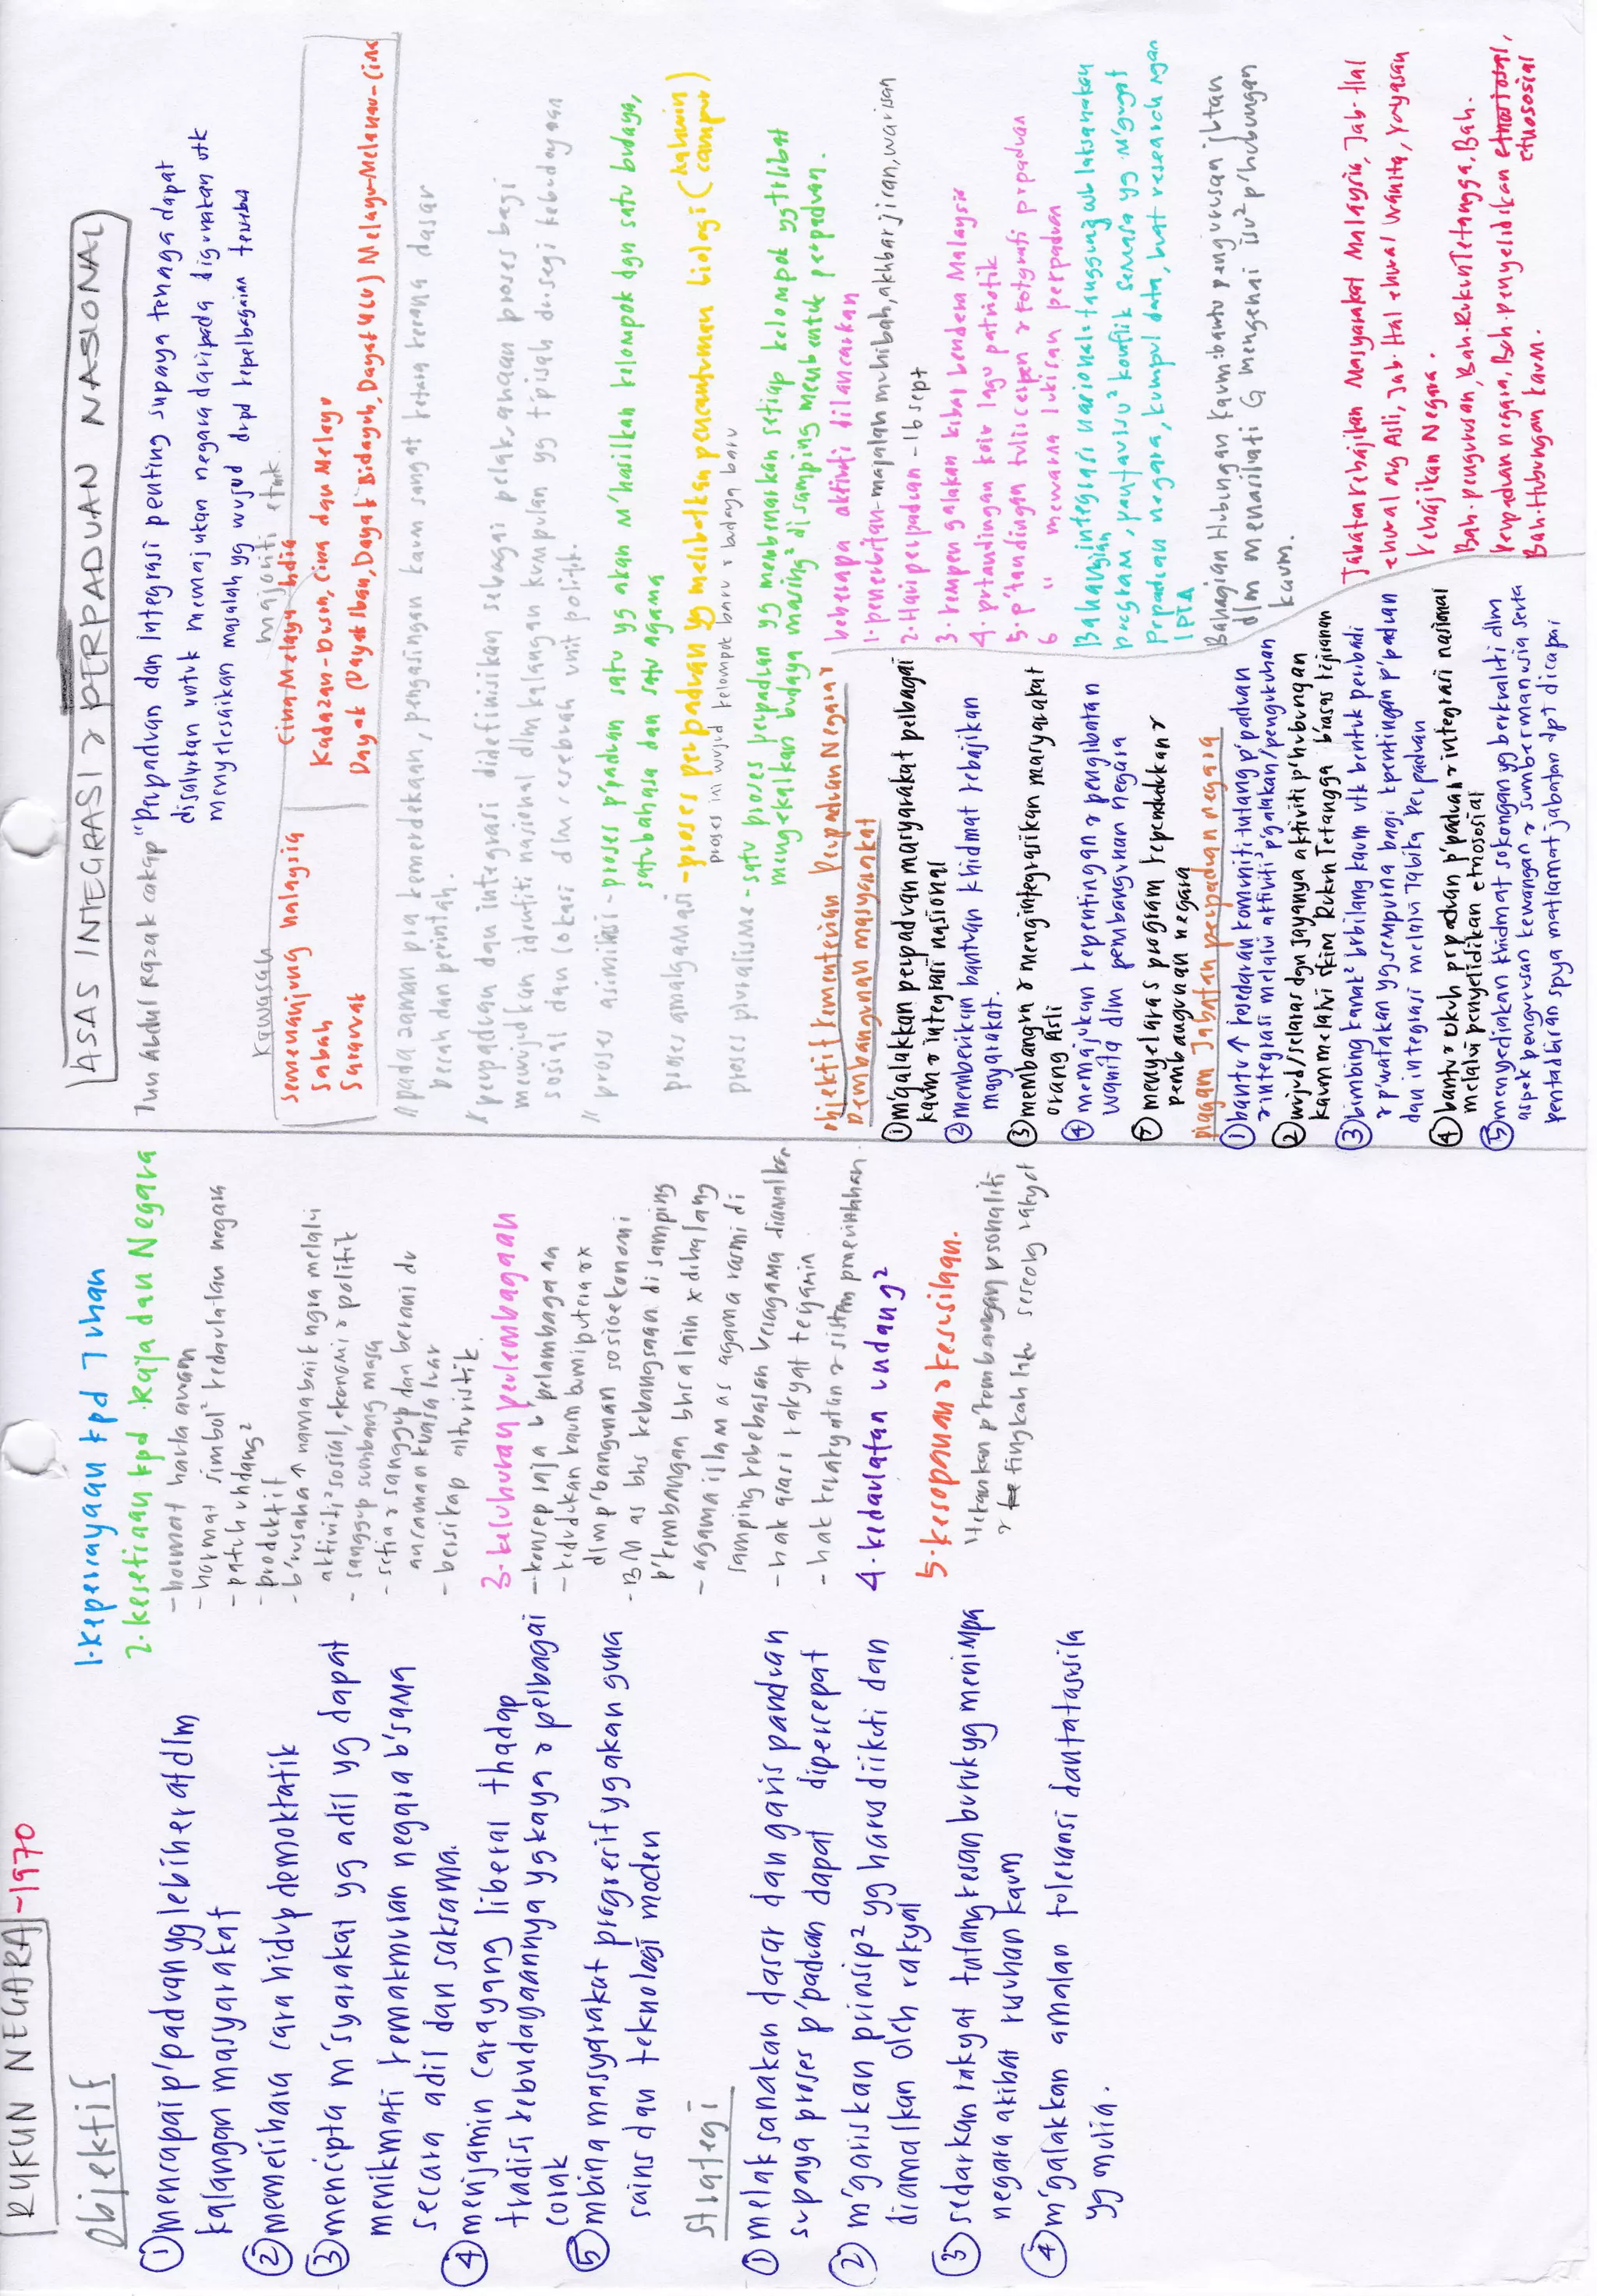 RUKUN NEGARA - 1970
Objektif
① mencapai p'paduan yg lebih erat dlm
kalangan masyarakat
② memelihara cara hidup demoktatik
③ mencipta m'syarakat yg adil yg dapat
menikmati kemakmuran negara b'sama
secara adil dan saksama.
④ menjamin cara yang liberal thadap
tradisi kebudayaannya yg kaya & pelbagai
corak
⑤ mbina masyarakat progresif yg akan guna
sains dan teknologi moden
Strategi
① melaksanakan dasar dan garis panduan
supaya proses p'paduan dapat dipercepat
② m'gariskan prinsip² yg harus diikuti dan
diamalkan oleh rakyat
③ sedarkan rakyat ttang kesan buruk yg menimpa
negara akibat rusuhan kaum
④ m'galakkan amalan toleransi dan tatasusila
yg mulia.
1. Kepercayaan kpd Tuhan
2. Kesetiaan kpd Raja dan Negara
- hormat
- harmat simbol² kedaulatan negara
- patuh undang²
- produktif
- b'rusaha ↑ nama baik ngra melalui
aktiviti² sosial, ekonomi & politik
- sanggup sumbang masa
- setia & sanggup dan berani
ancaman kuasa luar
- bersikap
3. Keluhuran perlembagaan
- konsep raja b'pelambagaan
- kedudukan kaum bumiputera
dlm p'bangunan sosioekonomi
- BM as bhs kebangsaan di samping
p'kembangan bhsa lain x dihalang
- agama islam as agama rasmi di
samping kebebasan beragama diamalkan
- hak asasi rakyat terjamin
- hak kerakyatan & sistem pmerintahan.
4. kedaulatan undang²
5. kesopanan & kesusilaan.
"tekankan p'kembangan psonaliti
& tingkah laku seseorg rakyat
ASAS INTEGRASI & PERPADUAN NASIONAL
Tun Abdul Razak cakap "Perpaduan dan integrasi penting supaya tenaga dapat
disalurkan untuk memajukan negara daripada digunakan utk
menyelesaikan masalah yg wujud drpd kepelbagaian tersebut
Kawasan majoriti etnik
Semenanjung Malaysia Cina Melayu India
Sabah Kadazan-Dusun, Cina dan Melayu
Sarawak Dayak (Dayak Iban, Dayak Bidayuh, Dayak Ulu) Melayu-Melanau-Cina
"pada zaman pra kemerdekaan, pengasingan kaum sangat ketara kerana dasar
pecah dan perintah.
"perpaduan dan integrasi didefinisikan sebagai pelaksanaan proses bagi
mewujudkan identiti nasional dlm kalangan kumpulan yg t'pisah dr segi kebudayaan
sosial dan lokasi dlm sesebuah unit politik.
"proses asimilasi - proses p'paduan satu yg akan m'hasilkan kelompok dgn satu budaya,
satu bahasa dan satu agama
proses amalgamasi - proses perpaduan yg melibatkan pencantuman biologi (kahwin campur)
proses ini wujud kelompok baru & budaya baru
proses pluralisme - satu proses perpaduan yg membenarkan setiap kelompok yg trlibat
mengekalkan budaya masing² disamping membentuk perpaduan.
objektif kementerian Perpaduan Negara &
Pembangunan masyarakat
① m'galakkan perpaduan masyarakat pelbagai
kaum & integrasi nasional
② memberikan bantuan khidmat kebajikan
masyarakat.
③ membangun & mengintegrasikan masyarakat
orang Asli
④ memajukan kepentingan & penglibatan
wanita dlm pembangunan negara
⑤ menyelaras program kependudukan &
pembangunan negara
Piagam Jabatan perpaduan negara
① bantu ↑ kesedaran komuniti ttang p'paduan
& integrasi melalui aktiviti² p'galakan/pengukuhan
② wujud/selaras dgn jayanya aktiviti p'hubungan
kaum melalui skim Rukun Tetangga b'asas kejiranan
③ bimbing kanak² brbilang kaum utk bentuk peribadi
& p'watakan yg sempurna bagi kpentingan p'paduan
dan integrasi melalui Tabika Perpaduan
④ bantu & ukuh p'paduan & integrasi nasional
melalui penyelidikan etnososial
⑤ menyediakan khidmat sokongan yg berkualiti dlm
aspek pengurusan kewangan & sumber manusia serta
pentadbiran spya matlamat jabatan dpt dicapai
beberapa aktiviti dilancarkan
1. penerbitan - majalah muhibah, akhbar jiran, warisan
2. Hari perpaduan - 16 sept
3. kempen galakan kibar bendera Malaysia
4. prtandingan koir lagu patriotik
5. p'tandingan tulis cerpen & fotografi prpaduan
6 " mewarna lukisan perpaduan
Bahagian integrasi nasional: tanggungjwb laksanakan
program, pantau isu² konflik semasa yg m'gugat
prpaduan negara, kumpul data, buat research dgn
IPTA
Bahagian Hubungan Kaum: bantu pengurusan jbtan
dlm menasihati G mengenai isu² p'hubungan
kaum.
Jabatan kebajikan Masyarakat Malaysia, Jab. Hal
ehwal org Asli, Jab. Hal ehwal Wanita, Yayasan
Kebajikan Negara.
Bah. pengurusan, Bah. Rukun Tetangga, Bah.
Perpaduan negara, Bah. penyelidikan etnososial,
Bah. Hubungan Kaum.